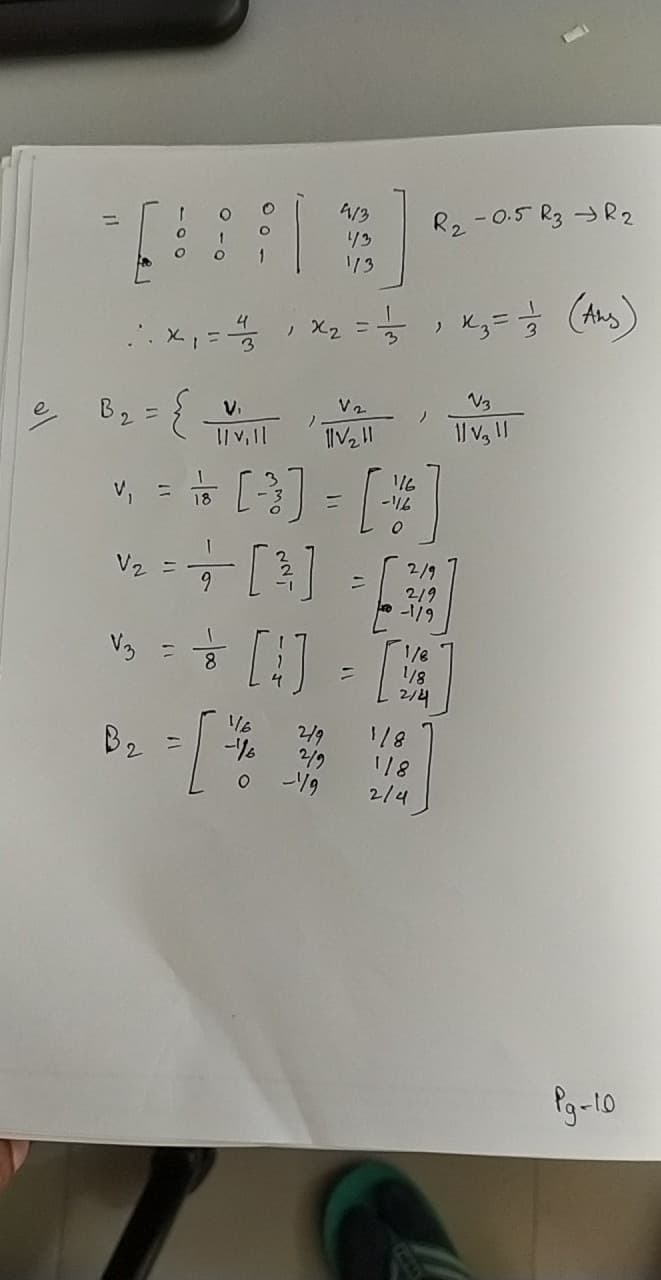 = [ 1 0 0 | 4/3
0 1 0 | 1/3
0 0 1 | 1/3 ] R₂ - 0.5 R₃ → R₂
∴ x₁ = 4/3 , x₂ = 1/3 , x₃ = 1/3 (Ans)
e B₂ = { V₁/||V₁|| , V₂/||V₂|| , V₃/||V₃||
V₁ = 1/18 [3 -3 0] = [1/6 -1/6 0]
V₂ = 1/9 [2 2 -1] = [2/9 2/9 -1/9]
V₃ = 1/8 [1 1 4] = [1/8 1/8 2/4]
B₂ = [ 1/6 2/9 1/8
-1/6 2/9 1/8
0 -1/9 2/4 ]
Pg-10